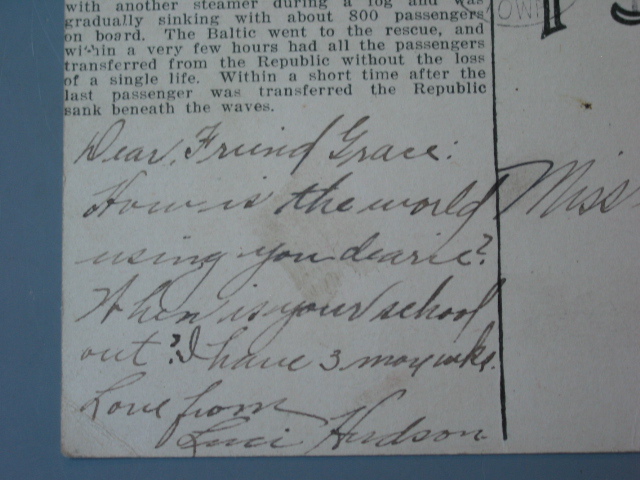 with another steamer during a fog and was
gradually sinking with about 800 passengers
on board. The Baltic went to the rescue, and
within a very few hours had all the passengers
transferred from the Republic without the loss
of a single life. Within a short time after the
last passenger was transferred the Republic
sank beneath the waves.
Dear, Friend Grace:
How is the world
using you dearie?
When is your school
out? I have 3 more wks.
Love from
Luci Hudson
Miss